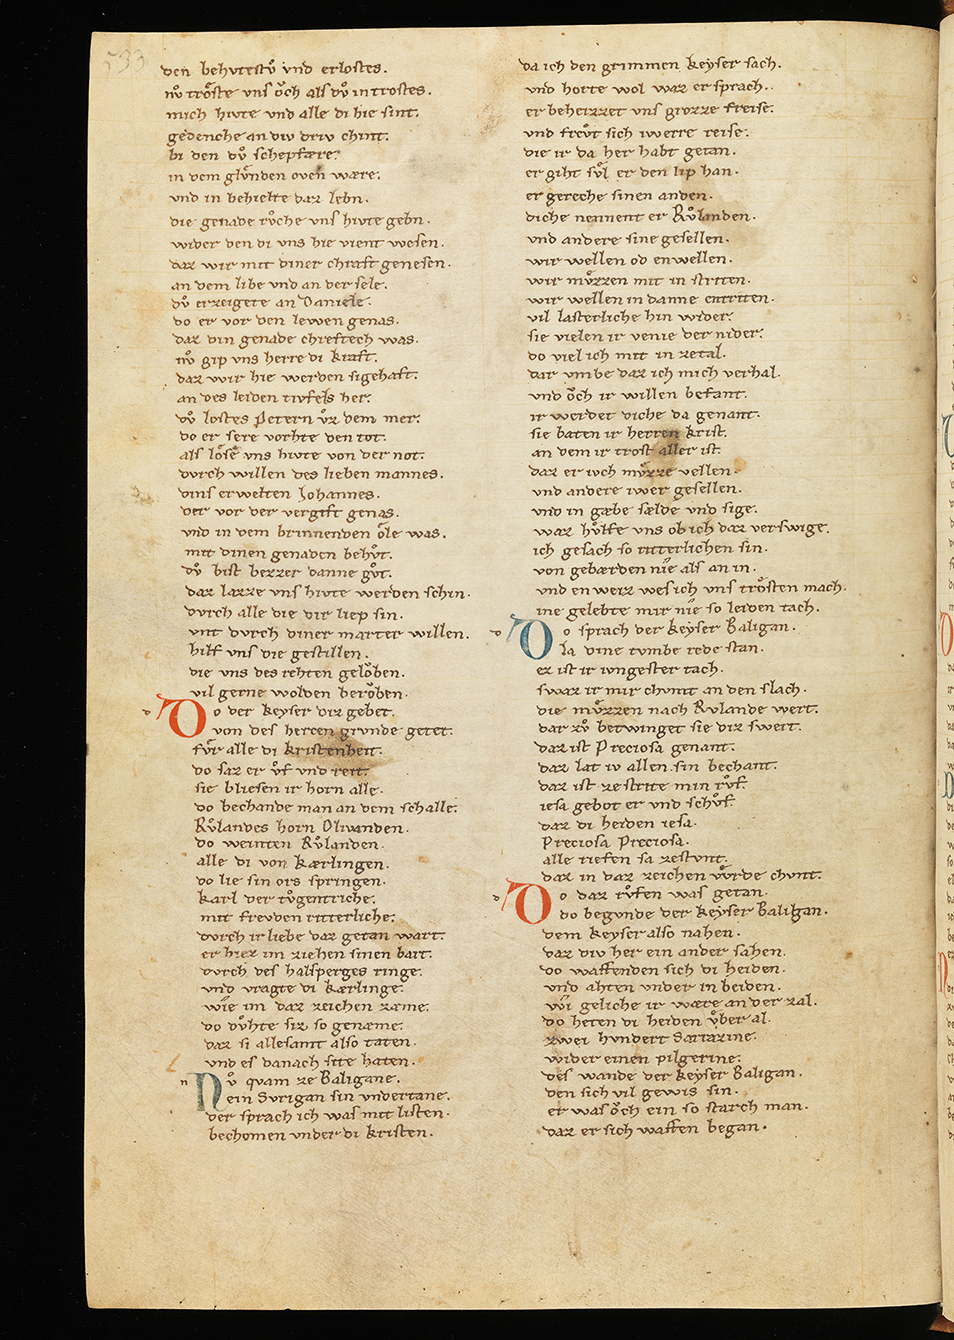 den behvtestv̊ vnd erlostes.
nv̊ trỏste vns ỏch als dv̊ in trostes.
mich hivte vnd alle di hie sint.
gedenche an div driv chint.
bi den dv̊ schepfære.
in dem glv̊nden oven wære.
vnd in behielte daz lebn.
die genade rv̊che vns hivte gebn.
wider den di vns hie vient wesen.
daz wir mit diner chraft genesen.
an dem libe vnd an der sele.
dv̊ erzeigete an Daniele.
do er vor den lewen genas.
daz din genade chreftech was.
nv̊ gip vns herre di kraft.
daz wir hie werden sigehaft.
an des leiden tivfels her.
dv̊ lostes Petern v̊z dem mer.
do er sere vorhte den tot.
als lỏse vns hivte von der not.
dvrch willen des lieben mannes.
dins erwelten Johannes.
der vor der vergift genas.
vnd in dem brinnenden ỏle was.
mit dinen genaden behv̊t.
dv̊ bist bezzer danne gv̊t.
daz lazze vns hivte werden schin.
dvrch alle die dir liep sin.
vnt dvrch diner marter willen.
hilf vns die gestillen.
die vns des rehten gelỏben.
vil gerne wolden berỏben.
Do der keyser diz gebet.
von des hercen grvnde getet.
fv̊r alle di kristenheit.
do saz er v̊f vnd reit.
sie bliesen ir horn alle.
do bechande man an dem schalle.
Rv̊landes horn Olivanden.
do weinten Rv̊landen.
alle di von kærlingen.
do lie sin ors springen.
karl der tv̊gentriche.
mit frevden ritterliche.
dvrch ir liebe daz getan wart.
er hiez im ziehen sinen bart.
dvrch des halsperges ringe.
vnd vragte di kærlinge.
wie im daz zeichen zæme.
do dv̊hte siz so genæme.
daz si allesamt also taten.
vnd es danach site haten.
Nv̊ quam ze Baligane.
ein Svrigan sin vndertane.
der sprach ich was mit listen.
bechomen vnder di kristen.
da ich den grimmen keyser sach.
vnd horte wol waz er sprach.
er beheizzet vns grozze freise.
vnd frev̊t sich iwerre reise.
die ir da her habt getan.
er giht sv̊l er den lip han.
er gereche sinen anden.
diche nennent er Rv̊landen.
vnd andere sine gesellen.
wir wellen od enwellen.
wir mv̊zzen mit in striten.
wir wellen in danne entriten.
vil lasterliche hin wider.
sie vielen ir venie der nider.
do viel ich mit in zetal.
dar vmbe daz ich mich verhal.
vnd ỏch ir willen befant.
ir werdet diche da genant.
sie baten ir herren krist.
an dem ir trost aller ist.
daz er ivch mv̊zze vellen.
vnd andere iwer gesellen.
vnd in gæbe sælde vnd sige.
waz hv̊lfe vns ob ich daz verswige.
ich gesach so ritterlichen sin.
von gebærden nie als an in.
vnd enweiz wes ich vns trỏsten mach.
ine gelebte mir nie so leiden tach.
Do sprach der keyser Baligan.
la dine tvmbe rede stan.
ez ist ir ivngester tach.
swaz ir mir chvmt an den slach.
die mv̊zzen nach Rvlande wert.
dar zv̊ betwinget sie diz swert.
daz ist Preciosa genant.
daz lat iv allen sin bechant.
daz ist ze strite min rv̊f.
iesa gebot er vnd schv̊f.
daz di heiden iesa.
Preciosa Preciosa.
alle riefen sa zestvnt.
daz in daz zeichen wv̊rde chvnt.
Do daz rv̊fen was getan.
do begvnde der keyser Baligan.
dem keyser also nahen.
daz div her ein ander sahen.
do waffenden sich di heiden.
vnd ahten vnder in beiden.
wi geliche ir wære an der zal.
do heten di heiden v̊ber al.
zwei hvndert Sarrazine.
wider einen pilgerine.
des wande der keyser Baligan.
den sich vil gewis sin.
er was ỏch ein so starch man.
daz er sich waffen began.